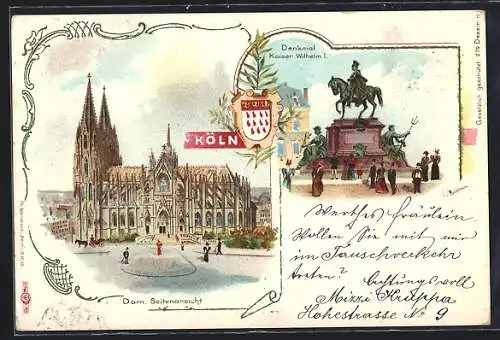 Denkmal
Kaiser Wilhelm I.
KÖLN
Dom. Seitenansicht
Gesetzlich geschützt 279 Dessin II
Werthes Fräulein
Wollen Sie mit mir
im Tauschverkehr
treten?
Achtungsvoll
Mizzi Kruppa
Hohestrasse No 9